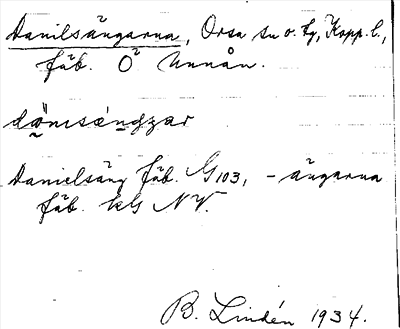 Danilsängarna, Orsa sn o. tg, Kopp. l.,
fäb. Ö Unnån.
Danielsäng fäb. G103, - ängarna
fäb. kls NV.
B. Lindén 1934.